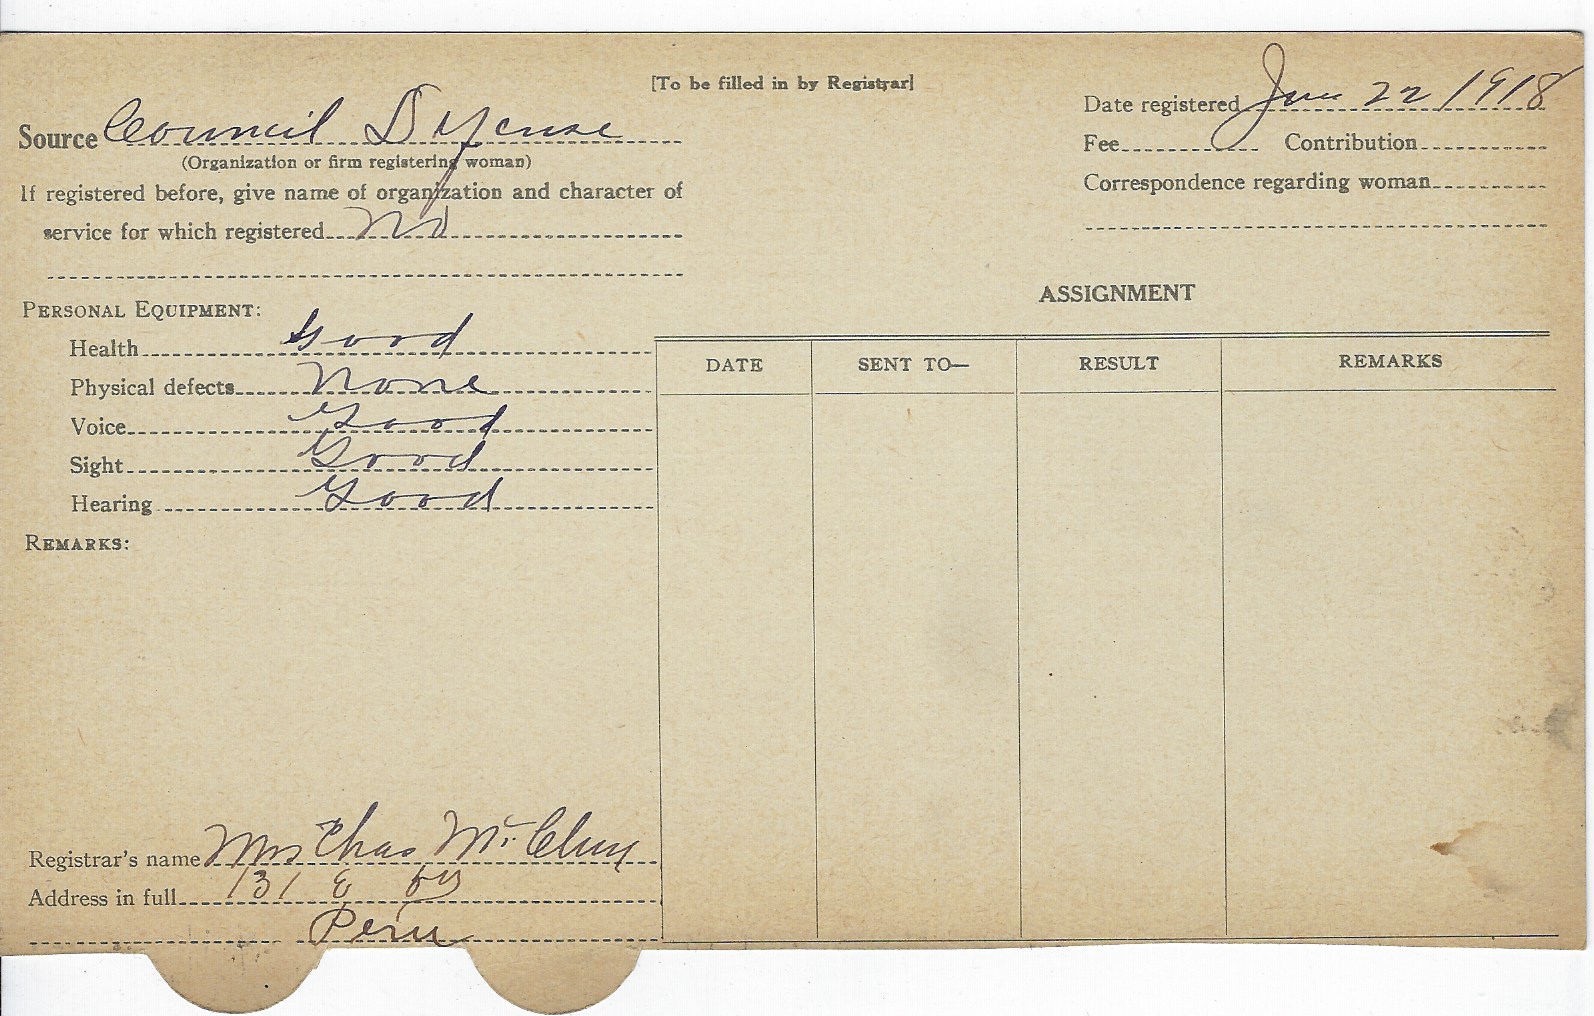 [To be filled in by Registrar]
Date registered June 22 1918
Source Council Defense
(Organization or firm registering woman)
Fee Contribution
If registered before, give name of organization and character of
Correspondence regarding woman
service for which registered No
ASSIGNMENT
PERSONAL EQUIPMENT:
Health Good
DATE SENT TO— RESULT REMARKS
Physical defects None
Voice Good
Sight Good
Hearing Good
REMARKS:
Registrar's name Mrs Chas
Address in full 131 E
Peru